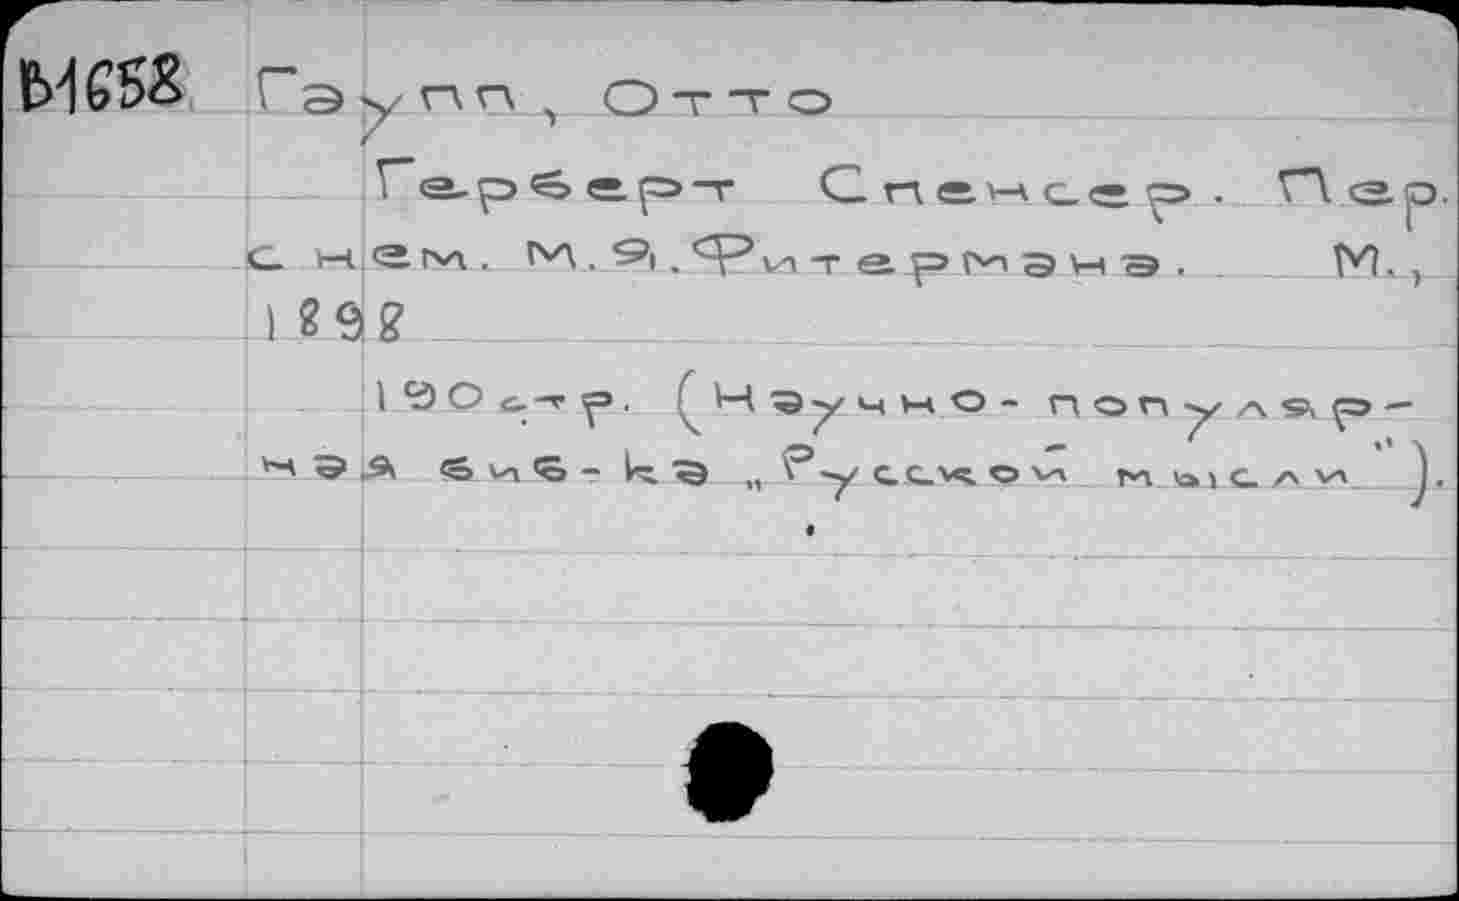 Ы658 Гаупп, Отто
Герберт Спенсер. Пер.
с нем. М.Я.Фитермана. М.,
1898
190 стр. (Научно-популяр-
ная биб-ка „Русской мысли").